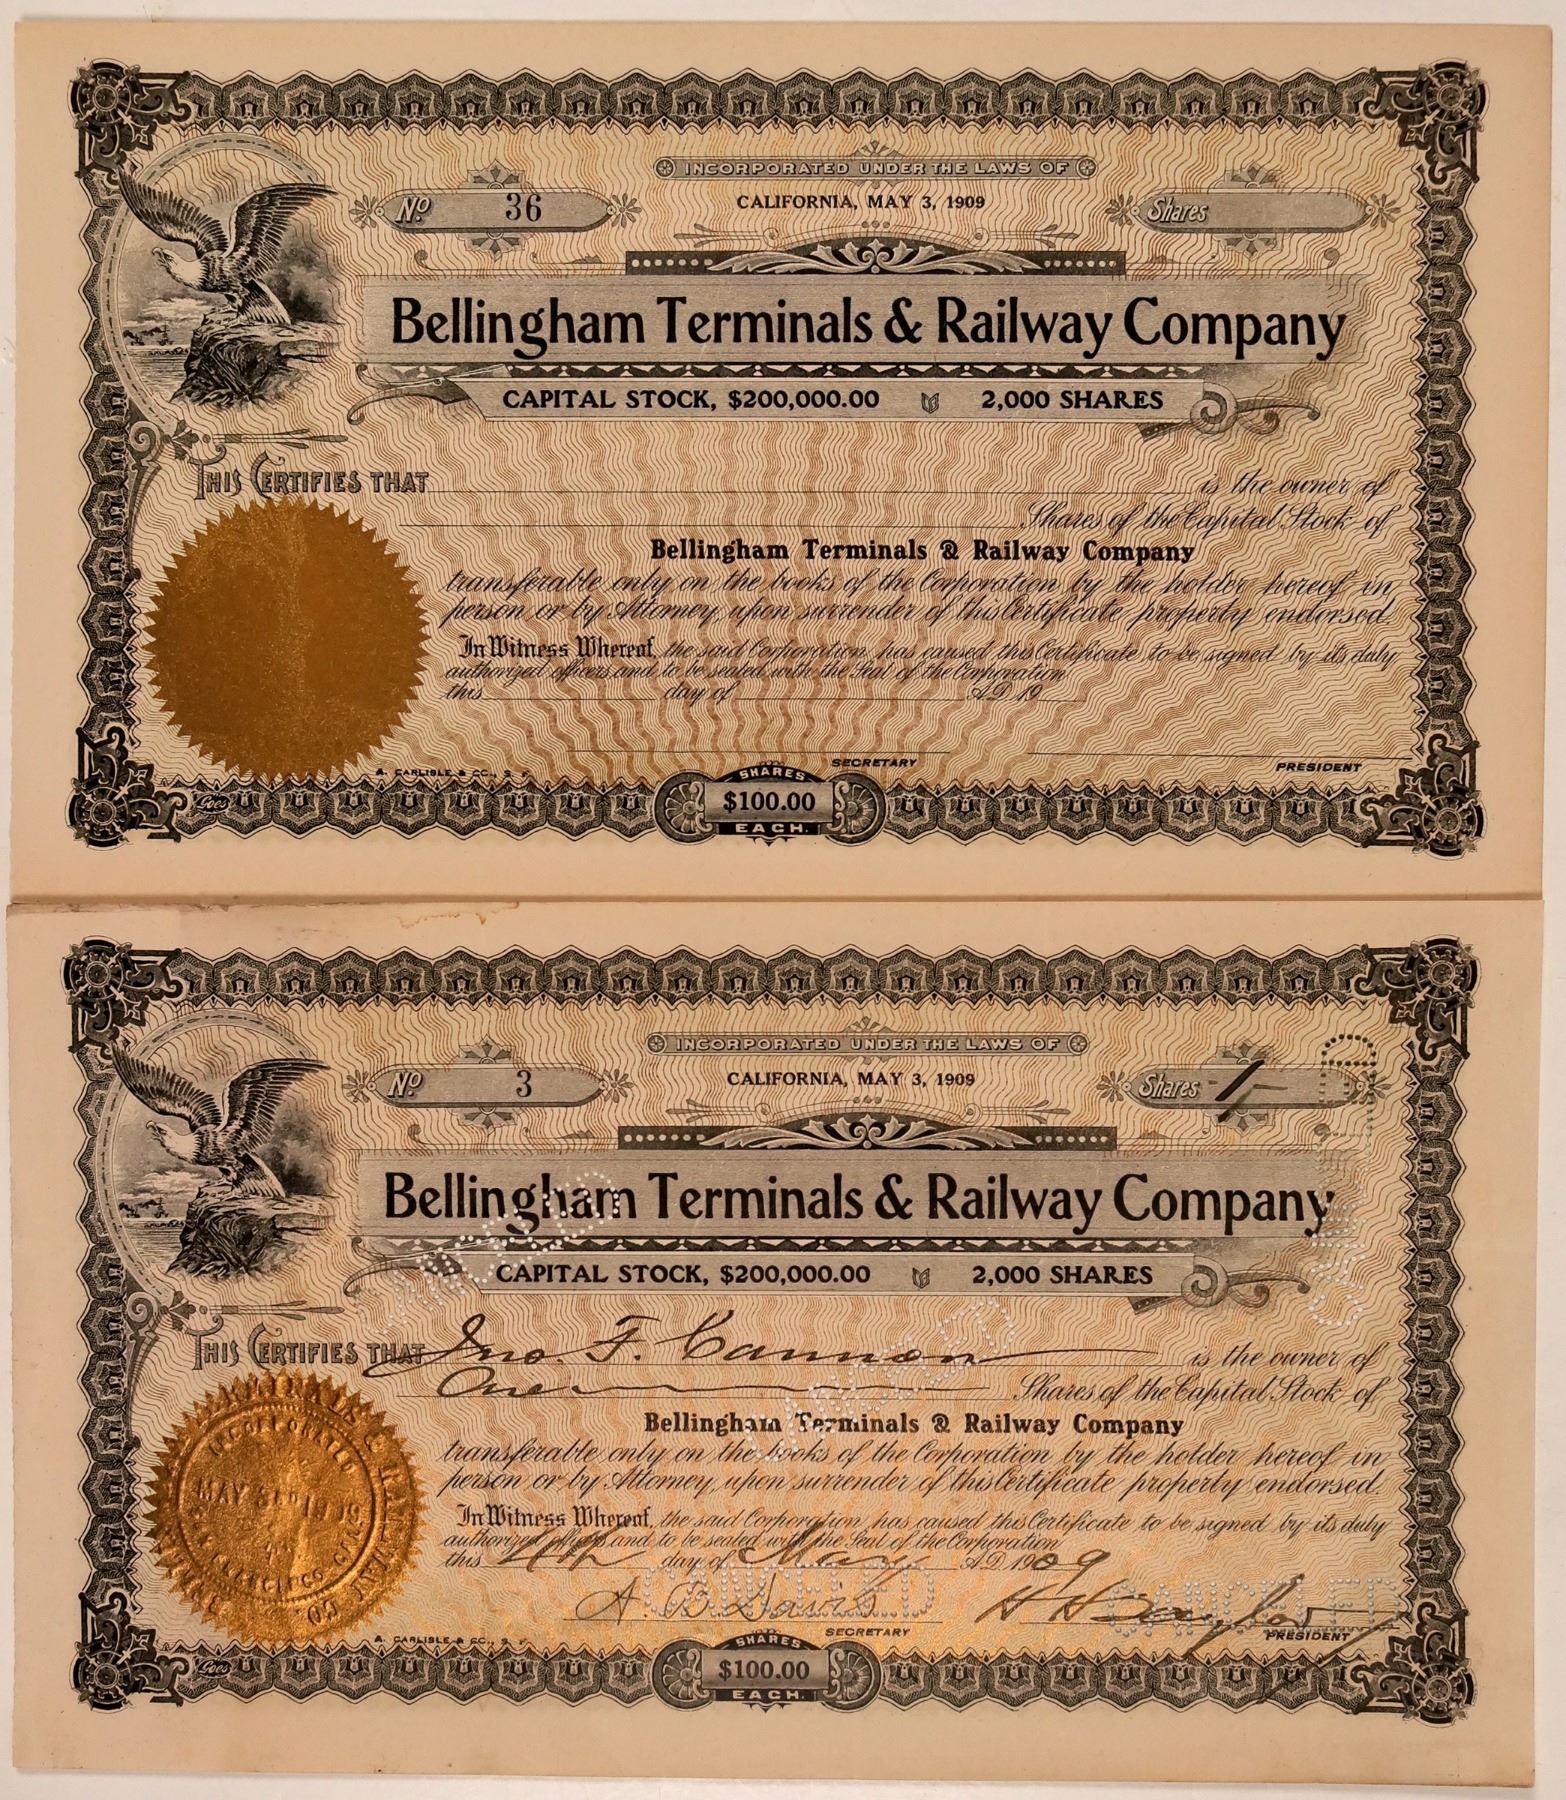 INCORPORATED UNDER THE LAWS OF
No. 36
CALIFORNIA, MAY 3, 1909
Shares
Bellingham Terminals & Railway Company
CAPITAL STOCK, $200,000.00 2,000 SHARES
THIS CERTIFIES THAT is the owner of
Shares of the Capital Stock of
Bellingham Terminals & Railway Company
transferable only on the books of the Corporation by the holder hereof in
person or by Attorney, upon surrender of this Certificate property endorsed.
In Witness Whereof, the said Corporation has caused this Certificate to be signed by its duly
authorized officers and to be sealed with the Seal of the Corporation
this day of A.D. 19
SECRETARY PRESIDENT
A. CARLISLE & CO., S. F.
Goes
SHARES
$100.00
EACH.
INCORPORATED UNDER THE LAWS OF
No. 3
CALIFORNIA, MAY 3, 1909
Shares -1-
Bellingham Terminals & Railway Company
CANCELLED
CAPITAL STOCK, $200,000.00 2,000 SHARES
THIS CERTIFIES THAT Jno. F. Cannon is the owner of
One Shares of the Capital Stock of
CANCELLED
Bellingham Terminals & Railway Company
transferable only on the books of the Corporation by the holder hereof in
person or by Attorney, upon surrender of this Certificate property endorsed.
In Witness Whereof, the said Corporation has caused this Certificate to be signed by its duly
authorized officers and to be sealed with the Seal of the Corporation
this 4th day of May A.D. 1909
CANCELLED CANCELLED
A. B. Davis H H Taylor
SECRETARY PRESIDENT
TERMINALS & RAILWAY CO.
INCORPORATED
MAY 3RD 1909
A. CARLISLE & CO., S. F.
Goes
SHARES
$100.00
EACH.